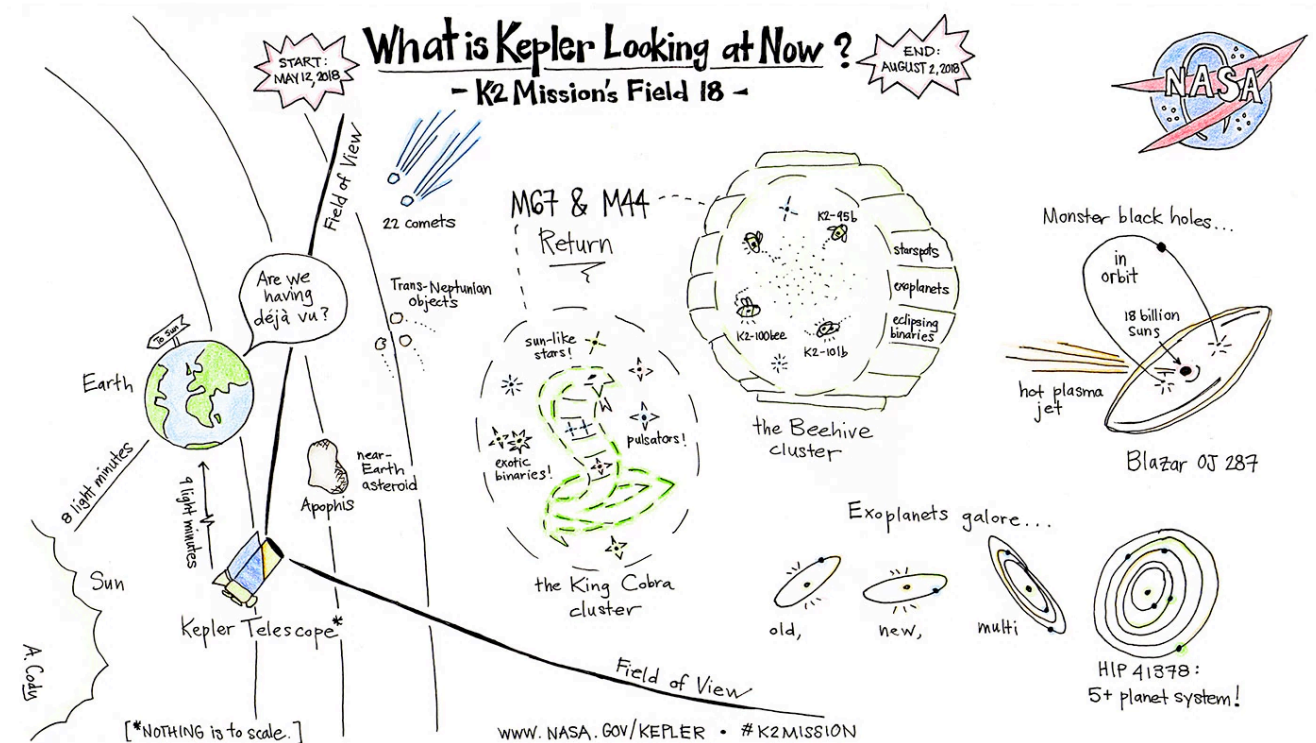 START:
MAY 12, 2018
What is Kepler Looking at Now?
- K2 Mission's Field 18 -
END:
AUGUST 2, 2018
NASA
Field of View
22 comets
Trans-Neptunian
objects
Are we
having
déjà vu?
To Sun
Earth
8 light minutes
9 light minutes
near-
Earth
asteroid
Apophis
Sun
Kepler Telescope*
A. Cody
[*NOTHING is to scale.]
M67 & M44
Return
sun-like
stars!
pulsators!
exotic
binaries!
the King Cobra
cluster
K2-95b
K2-100bee
K2-101b
starspots
exoplanets
eclipsing
binaries
the Beehive
cluster
Monster black holes...
in
orbit
18 billion
suns
hot plasma
jet
Blazar OJ 287
Exoplanets galore...
old,
new,
multi
HIP 41378:
5+ planet system!
Field of View
WWW.NASA.GOV/KEPLER • #K2MISSION